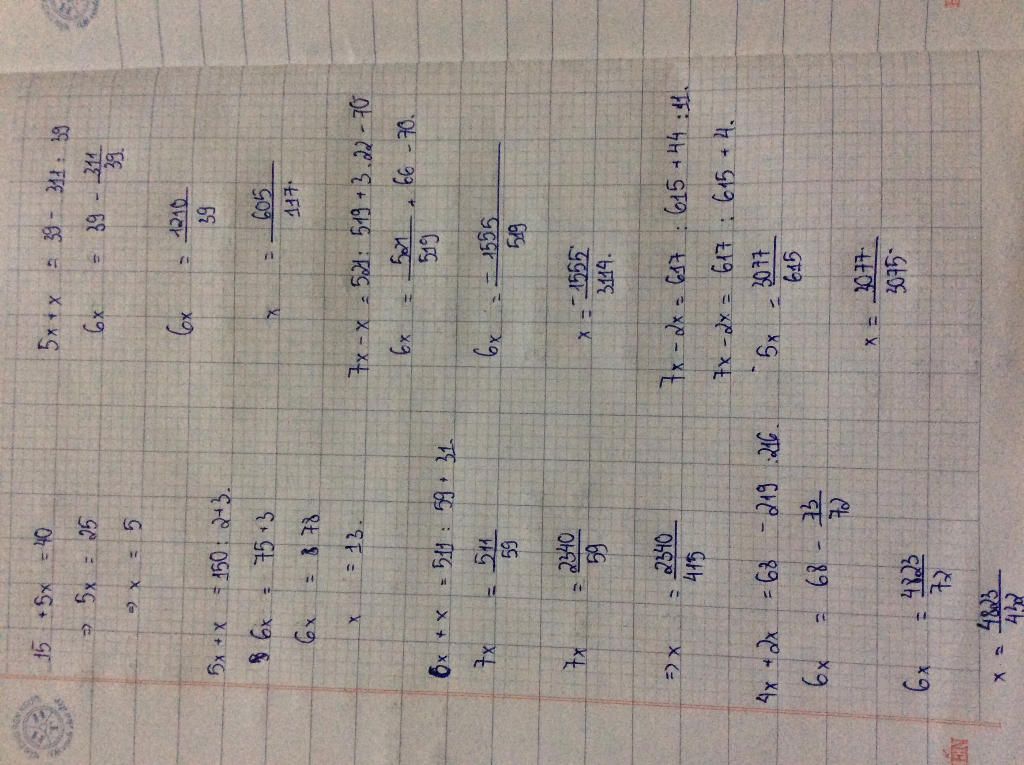 15 + 5x = 40
⇒ 5x = 25
⇒ x = 5
5x + x = 150 : 2+3.
6x = 75 + 3
6x = 78
x = 13.
6x + x = 511 : 59 + 31
7x = 511/59
7x = 2340/59
⇒ x = 2340/415
4x + 2x = 68 - 219 : 216
6x = 68 - 73/72
6x = 4823/72
x = 4823/432
5x + x = 39 - 311 : 39
6x = 39 - 311/39.
6x = 1210/39
x = 605/117.
7x - x = 521 : 519 + 3 . 22 - 70
6x = 521/519 + 66 - 70.
6x = -1555/519
x = -1555/3114.
7x - 2x = 617 : 615 + 44 : 11.
7x - 2x = 617 : 615 + 4.
5x = 3077/615
x = 3077/3075.